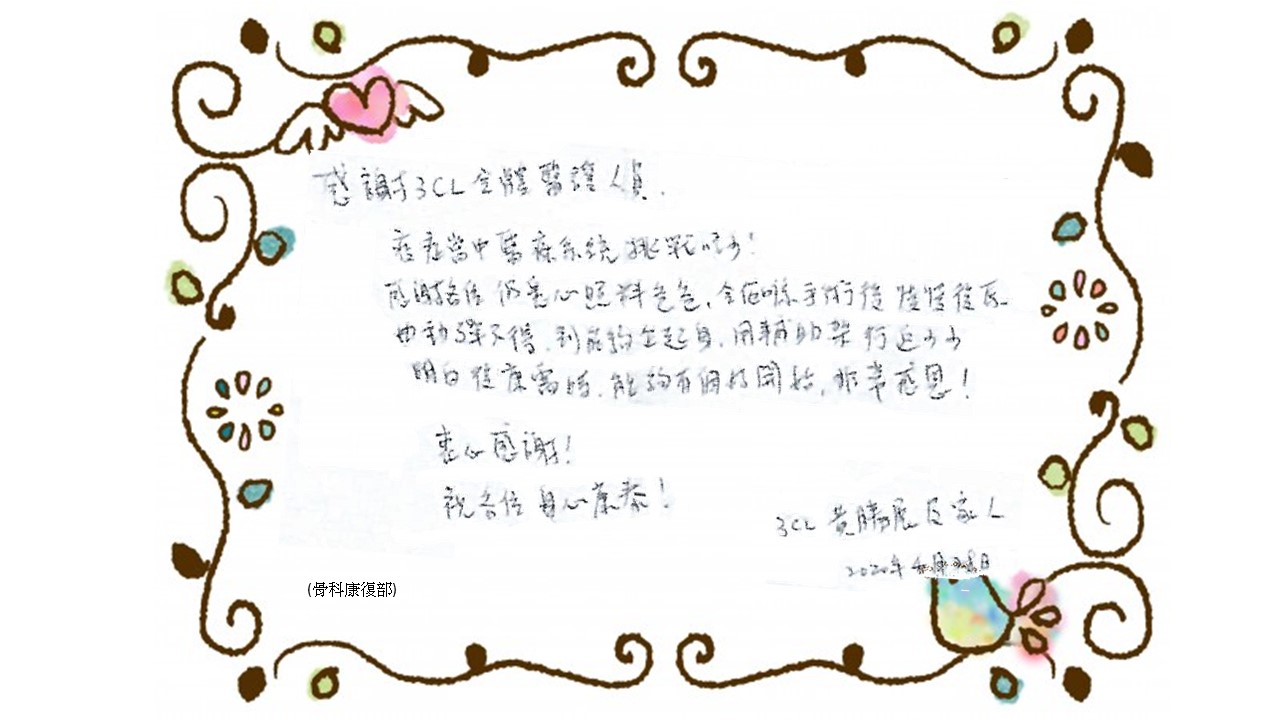 感謝3CL全體醫護人員.
疫症當中醫療系統挑戰吃力!
感謝各位仍悉心照料爸爸,令佢喺手術後
由動彈不得,到能夠坐起身,用輔助架行返少少
明白復康需時,能夠有個好開始,非常感恩!
衷心感謝!
祝各位身心康泰!
3CL 黃勝展及家人
2020年4月28日
(骨科康復部)